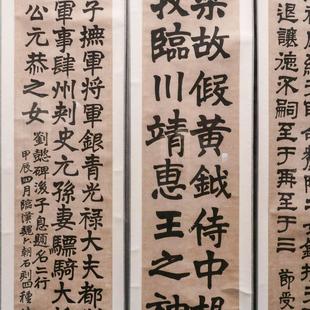 退讓德不嗣至于再至于三
節受
梁故假黃鉞侍中
牧臨川靖惠王之神
子撫軍將軍銀青光祿大夫都
軍事肆州刺史元孫妻驃騎大
公元恭之女
劉懿碑後子息題名二行
甲辰四月臨漢魏六朝石刻四種